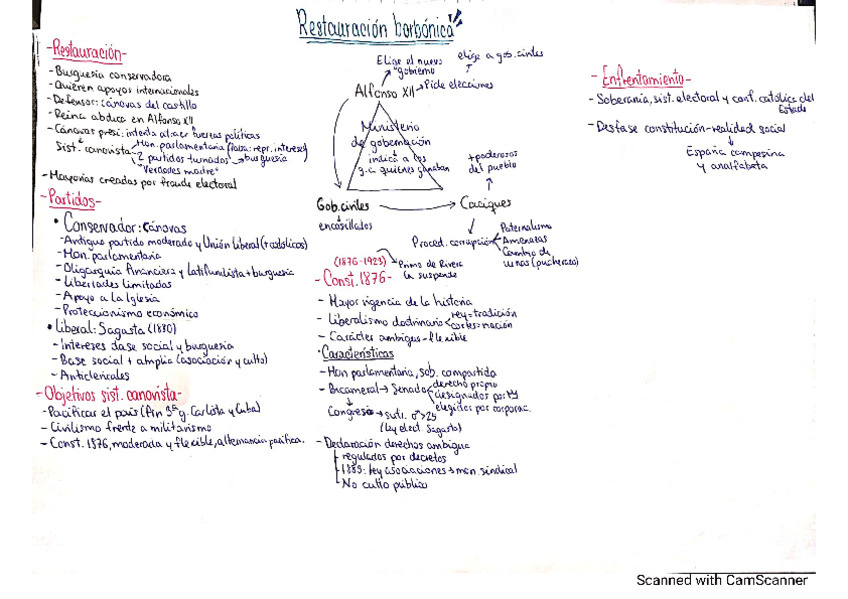 Restauración borbónica
-Restauración-
-Burguesía conservadora
-Quieren apoyos internacionales
-Defensor: cánovas del castillo
-Reina abdica en Alfonso XII
-Cánovas presi: intenta atraer fuerzas políticas
Sist. canovista
Mon. parlamentaria (falsa: repr. intereses)
2 partidos turnados → burguesía
"Verdades madre"
-Mayorías creadas por fraude electoral
-Partidos-
• Conservador: Cánovas
-Antiguo partido moderado y Unión liberal (+católicos)
-Mon. parlamentaria
-Oligarquía financiera y latifundista + burguesía
-Libertades limitadas
-Apoyo a la Iglesia
-Proteccionismo económico
• liberal: Sagasta (1880)
-Intereses clase social y burguesía
-Base social + amplia (asociación y culto)
-Anticlericales
-Objetivos sist. canovista-
-Pacificar el país (fin 3ª g. Carlista y Cuba)
-Civilismo frente a militarismo
-Const. 1876, moderada y flexible, alternancia pacífica.
Elige el nuevo gobierno
elige a gob. civiles
Alfonso XII → Pide elecciones
Ministerio
de gobernación
indica a los
g.c quienes ganaban
+poderosos
del pueblo
Gob. civiles → Caciques
encasillados
Proced. corrupción
Paternalismo
Amenazas
urnas (pucherazo)
(1876-1923)
Primo de Rivera
la suspende
-Const. 1876-
- Mayor vigencia de la historia
- Liberalismo doctrinario
rey=tradición
cortes=nación
- Carácter ambiguo-flexible
·Características
-Mon parlamentaria, sob. compartida
-Bicameral → Senado
derecho propio
designados por
elegidos por corporac.
Congreso → sufr. ♂>25
(ley elect. Sagasta)
-Declaración derechos ambigua
regulados por decretos
ley asociaciones → mov. sindical
No culto público
- Enfrentamiento-
- Soberanía, sist. electoral y conf. católica del
Estado
- Desfase constitución-realidad social
España campesina
y analfabeta
Scanned with CamScanner